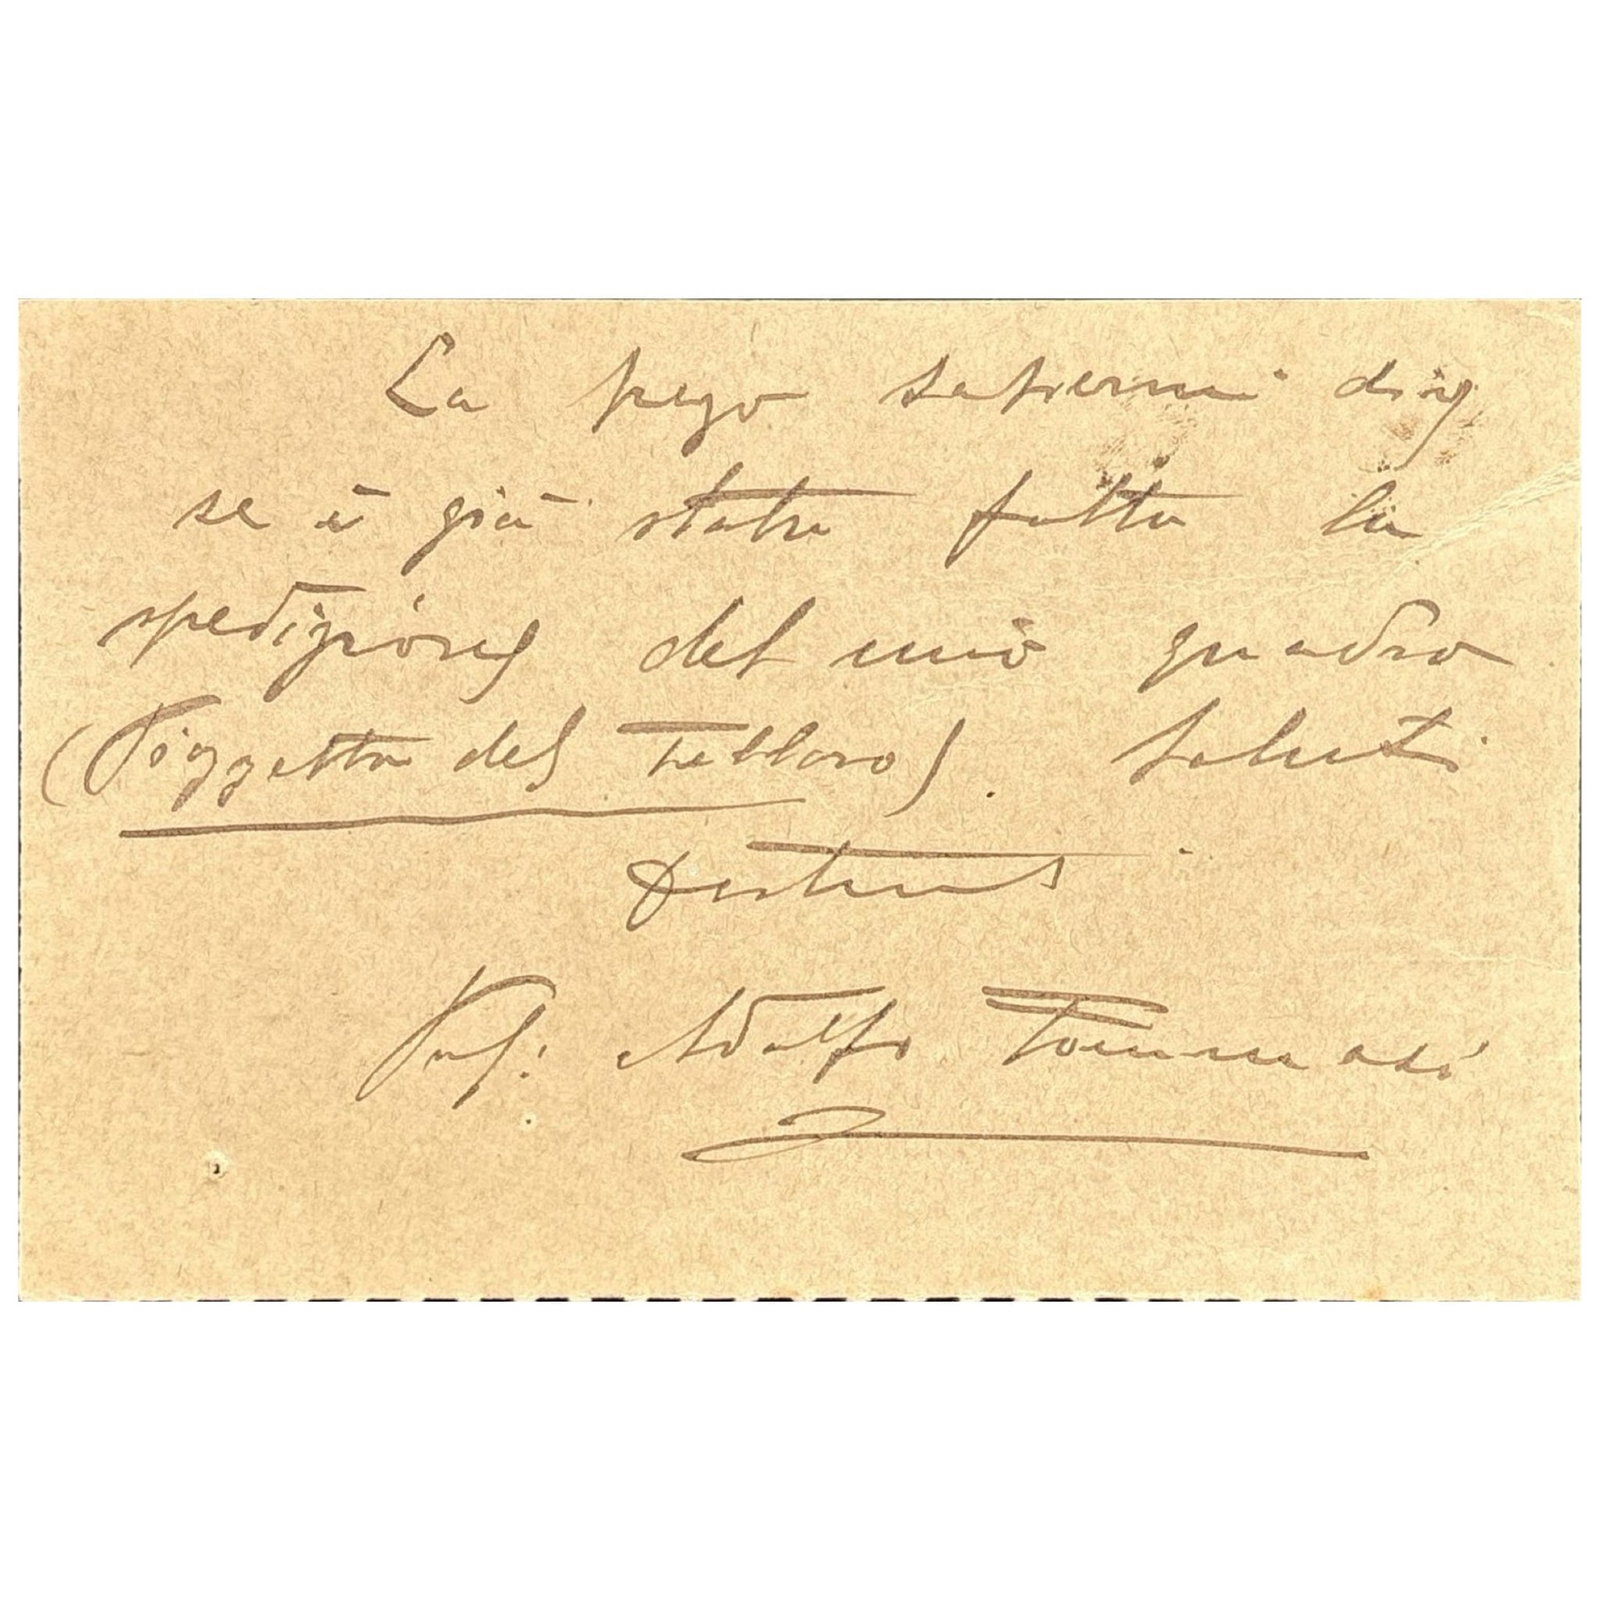 La prego sapermi dire
se è già stata fatta la
spedizione del mio quadro
(Piazzetta del Tellaro). Saluti
distinti
Prof: Adolfo Tommasi